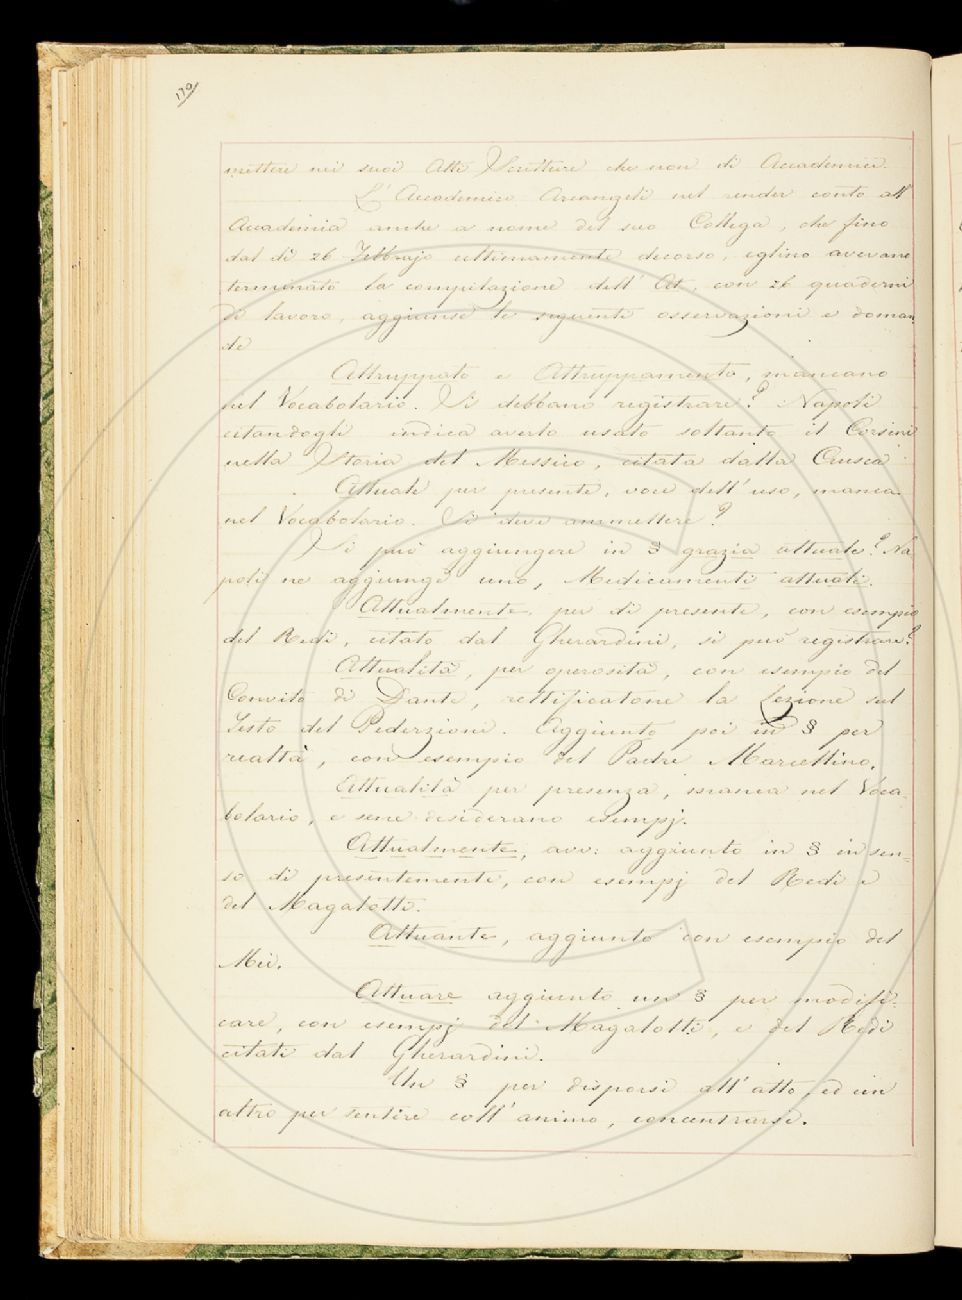 170
mettere nei suoi Atti Scritture che non di Accademici.
L'Accademico Arcangeli nel render conto all'
Accademia anche a nome del suo Collega, che fino
dal dì 26 Febbrajo ultimamente decorso, eglino avevano
terminato la compilazione dell' At. con 26 quaderni
di lavoro, aggiunse le seguenti osservazioni e doman
de
Attruppato e Attruppamento, mancano
nel Vocabolario. Si debbano registrare? Napoli
citandogli indica averlo usato soltanto il Corsini
nella Storia del Messico, citata dalla Crusca
Attuale per presente, voce dell'uso, manca
nel Vocabolario. Si deve ammettere?
Si può aggiungere in § grazia attuale? Na
poli ne aggiunge uno, Medicamenti attuali.
Attualmente per di presente, con esempio
del Redi, citato dal Gherardini, si può registrare?
Attualità, per operosità, con esempio del
Convito di Dante, rettificatone la Lezione sul
Testo del Pederzioni. Aggiunto poi in § per
realtà, con esempio del Padre Marcellino.
Attualità per presenza, manca nel Voca-
bolario, e sene desiderano esempj.
Attualmente, avv: aggiunto in § in sen-
so di presentemente, con esempj del Redi e
del Magalotti.
Attuante, aggiunto con esempio del
Mei.
Attuare aggiunto un § per modifi-
care, con esempj del Magalotti, e del Redi
citati dal Gherardini.
Un § per disporsi all'atto, ed un
altro per sentire coll'animo, concentrarsi.